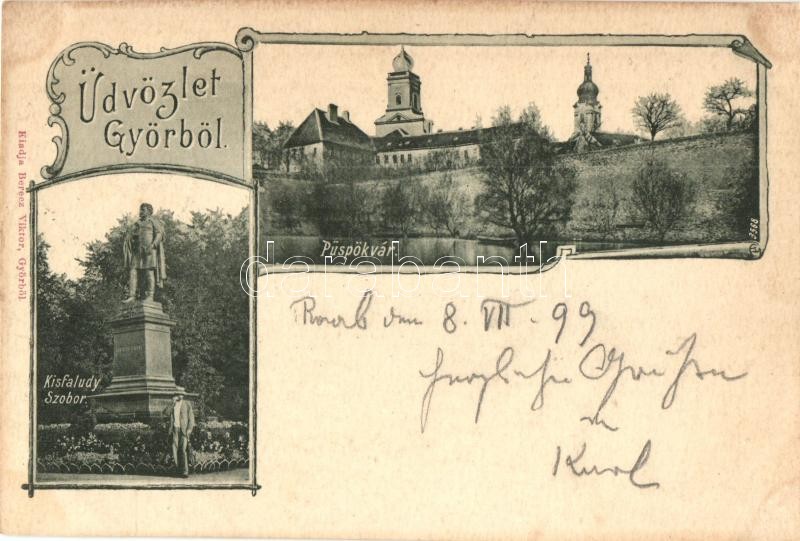 Üdvözlet
Györböl.
Püspökvár.
3568
Kisfaludy
Szobor.
Kiadja Berecz Viktor, Györböl
darabanth
Raab den 8. VII. 99
herzliche Grüße
Karl